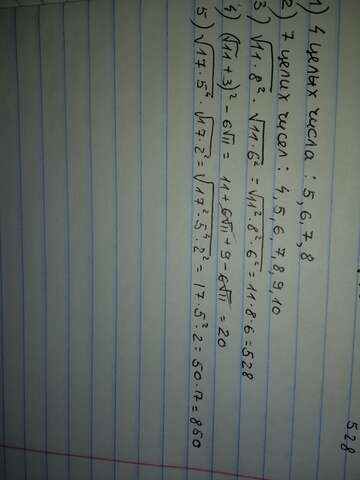 528
1) 4 целых числа : 5, 6, 7, 8
2) 7 целих чисел : 4, 5, 6, 7, 8, 9, 10
3) √(11·8²) · √(11·6²) = √(11²·8²·6²) = 11·8·6 = 528
4) (√11 + 3)² - 6√11 = 11 + 6√11 + 9 - 6√11 = 20
5) √(17·5⁴) · √(17·2²) = √(17²·5⁴·2²) = 17·5²·2 = 50·17 = 850